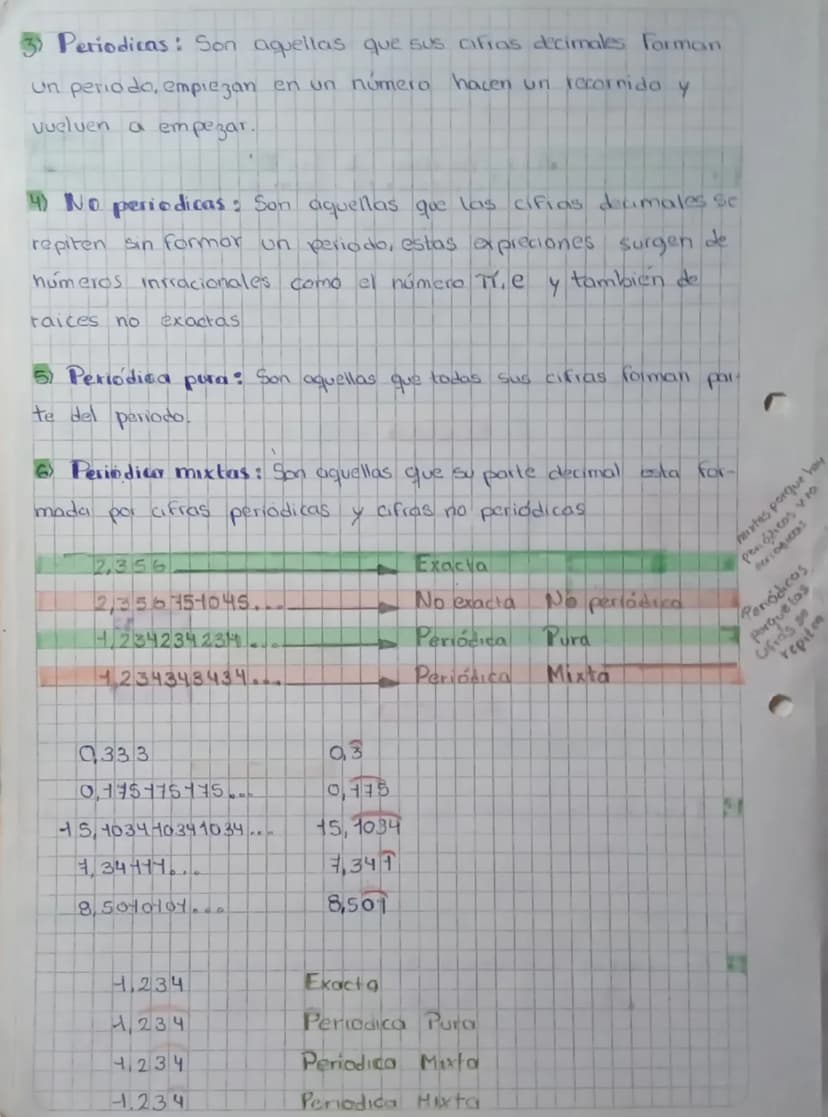 3) Periodicas: Son aquellas que sus cifras decimales forman
un periodo, empiezan en un número hacen un recorrido y
vuelven a empezar.
4) No periodicas: Son aquellas que las cifras decimales se
repiten sin formar un periodo, estas expreciones surgen de
números inrracionales como el número π, e y también de
raices no exactas
5) Periódica pura: Son aquellas que todas sus cifras forman par-
te del periodo.
6) Periódicas mixtas: Son aquellas que su parte decimal esta for-
mada por cifras periódicas y cifras no perióddicas
mixtas porque hay
periódicas y no
periodicas
2,356 Exacta
2,356751045... No exacta No periódica
1,234234234... Periódica Pura
1,234343434... Periódica Mixta
Periódicas
porque las
cifras se
repiten
0,333 0,3̅
0,175175175... 0,1̅7̅5̅
15,103410341034... 15,1̅0̅3̅4̅
7,34111... 7,341̅
8,5010101... 8,50̅1̅
1,234 Exacta
1,2̅3̅4̅ Periodica Pura
1,23̅4̅ Periodica Mixta
1,234̅ Periodica Mixta